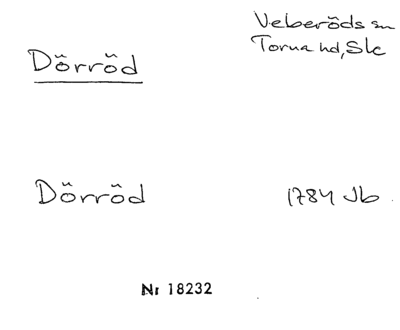 Veberöds sn
Dörröd
Torna hd, Sk
Dörröd 1784 Jb
Nr 18232